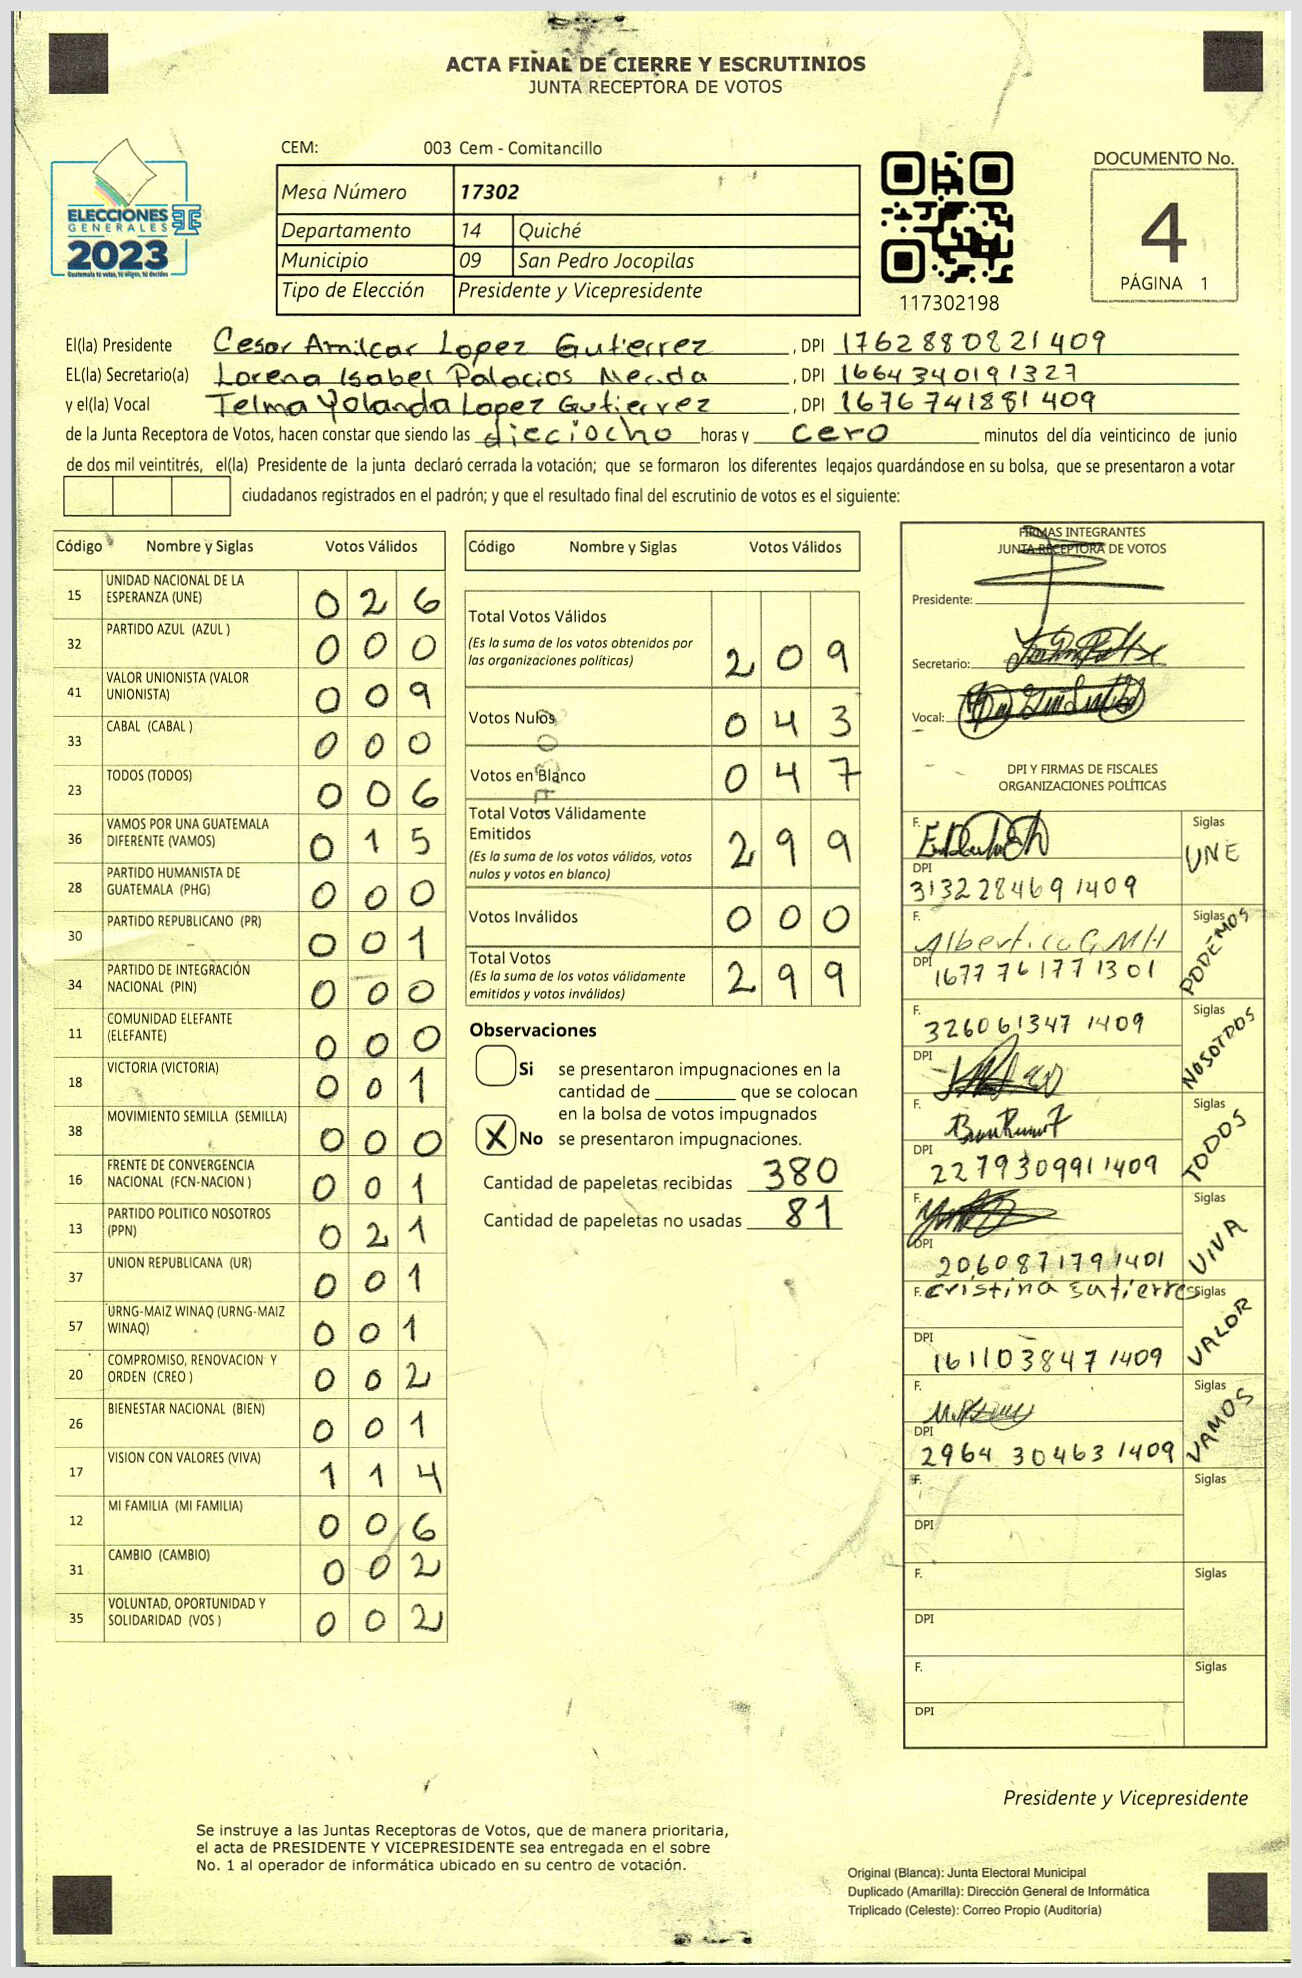 ACTA FINAL DE CIERRE Y ESCRUTINIOS
JUNTA RECEPTORA DE VOTOS
CEM: 003 Cem - Comitancillo
ELECCIONES
GENERALES
2023
Guatemala tú votas, tú eliges, tú decides
Mesa Número 17302
Departamento 14 Quiché
Municipio 09 San Pedro Jocopilas
Tipo de Elección Presidente y Vicepresidente
117302198
DOCUMENTO No.
4
PÁGINA 1
El(la) Presidente Cesar Amilcar Lopez Gutierrez , DPI 1762880821409
EL(la) Secretario(a) Lorena Isabel Palacios Merida , DPI 1664340191327
y el(la) Vocal Telma Yolanda Lopez Gutierrez , DPI 1676741881409
de la Junta Receptora de Votos, hacen constar que siendo las dieciocho horas y cero minutos del día veinticinco de junio
de dos mil veintitrés, el(la) Presidente de la junta declaró cerrada la votación; que se formaron los diferentes legajos guardándose en su bolsa, que se presentaron a votar
ciudadanos registrados en el padrón; y que el resultado final del escrutinio de votos es el siguiente:
Código Nombre y Siglas Votos Válidos
15 UNIDAD NACIONAL DE LA ESPERANZA (UNE) 026
32 PARTIDO AZUL (AZUL ) 000
41 VALOR UNIONISTA (VALOR UNIONISTA) 009
33 CABAL (CABAL ) 000
23 TODOS (TODOS) 006
36 VAMOS POR UNA GUATEMALA DIFERENTE (VAMOS) 015
28 PARTIDO HUMANISTA DE GUATEMALA (PHG) 000
30 PARTIDO REPUBLICANO (PR) 001
34 PARTIDO DE INTEGRACIÓN NACIONAL (PIN) 000
11 COMUNIDAD ELEFANTE (ELEFANTE) 000
18 VICTORIA (VICTORIA) 001
38 MOVIMIENTO SEMILLA (SEMILLA) 000
16 FRENTE DE CONVERGENCIA NACIONAL (FCN-NACION ) 001
13 PARTIDO POLITICO NOSOTROS (PPN) 021
37 UNION REPUBLICANA (UR) 001
57 URNG-MAIZ WINAQ (URNG-MAIZ WINAQ) 001
20 COMPROMISO, RENOVACION Y ORDEN (CREO ) 002
26 BIENESTAR NACIONAL (BIEN) 001
17 VISION CON VALORES (VIVA) 114
12 MI FAMILIA (MI FAMILIA) 006
31 CAMBIO (CAMBIO) 002
35 VOLUNTAD, OPORTUNIDAD Y SOLIDARIDAD (VOS ) 002
Código Nombre y Siglas Votos Válidos
Total Votos Válidos 209
(Es la suma de los votos obtenidos por
las organizaciones políticas)
Votos Nulos 043
Votos en Blanco 047
Total Votos Válidamente
Emitidos 299
(Es la suma de los votos válidos, votos
nulos y votos en blanco)
Votos Inválidos 000
Total Votos 299
(Es la suma de los votos válidamente
emitidos y votos inválidos)
Observaciones
Si se presentaron impugnaciones en la
cantidad de ________ que se colocan
en la bolsa de votos impugnados
X No se presentaron impugnaciones.
Cantidad de papeletas recibidas 380
Cantidad de papeletas no usadas 81
FIRMAS INTEGRANTES
JUNTA RECEPTORA DE VOTOS
Presidente:
Secretario:
Vocal:
DPI Y FIRMAS DE FISCALES
ORGANIZACIONES POLÍTICAS
F. Siglas UNE
DPI 3132284691409
F. Siglas PODEMOS
DPI 1677761771301
F. 3260613471409 Siglas NOSOTROS
DPI
F. Siglas TODOS
DPI 2279309911409
F. Siglas VIVA
DPI 2060871791401
F. cristina gutierres Siglas VALOR
DPI 1611038471409
F. Siglas VAMOS
DPI 2964304631409
F. Siglas
DPI
F. Siglas
DPI
F. Siglas
DPI
Presidente y Vicepresidente
Se instruye a las Juntas Receptoras de Votos, que de manera prioritaria,
el acta de PRESIDENTE Y VICEPRESIDENTE sea entregada en el sobre
No. 1 al operador de informática ubicado en su centro de votación.
Original (Blanca): Junta Electoral Municipal
Duplicado (Amarilla): Dirección General de Informática
Triplicado (Celeste): Correo Propio (Auditoría)